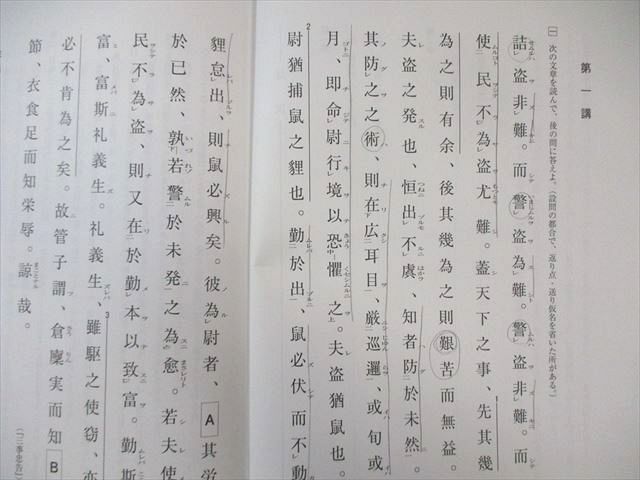 第一講
㈠ 次の文章を読んで、後の問に答えよ。（設問の都合で、返り点・送り仮名を省いた所がある。）
詰盗非難。而警盗為難。警盗非難。而
使民不為盗尤難。蓋天下之事、先其幾
為之則有余、後其幾為之則艱苦而無益。
夫盗之発也、恒出不虞、知者防於未然。
其防之之術、則在広耳目、厳巡邏、或旬或
月、即命尉行境以恐懼之。夫盗猶鼠也。
尉猶捕鼠之貍也。勤於出、鼠必伏而不動
貍怠出、則鼠必興矣。彼為尉者、A其労
於已然、孰若警於未発之為愈。若夫使
民不為盗、則又在於勤本以致富。勤斯
富、富斯礼義生。礼義生、雖駆之使窃、亦
必不肯為之矣。故管子謂、倉廩実而知B
節、衣食足而知栄辱。諒哉。
（『三事忠告』